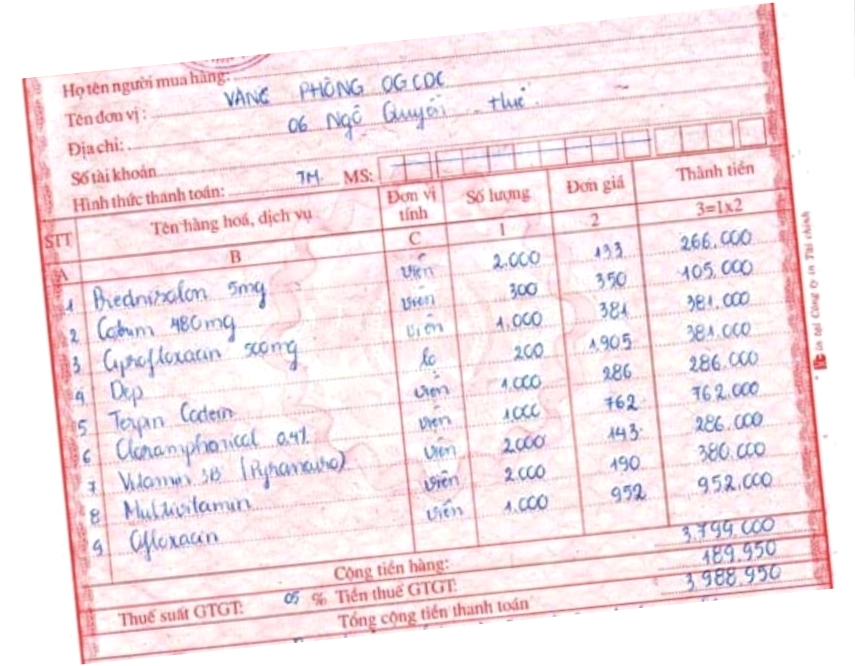 Họ tên người mua hàng:
Tên đơn vị: VĂNG PHÒNG OGCDC
Địa chỉ: 06 Ngô Quyền Huế
Số tài khoản
Hình thức thanh toán: TM. MS:
STT Tên hàng hoá, dịch vụ Đơn vị tính Số lượng Đơn giá Thành tiền
A B C 1 2 3=1x2
1 Prednisolon 5mg viên 2.000 133 266.000
2 480mg viên 300 350 105.000
3 Ciprofloxacin 500mg viên 1.000 381 381.000
4 Dep lọ 200 1.905 381.000
5 Terpin Codein viên 1.000 286 286.000
6 0,4% viên 1000 762 762.000
7 Vitamin 3B viên 2.000 143 286.000
8 Multivitamin viên 2.000 190 380.000
9 Ofloxacin viên 1.000 952 952.000
Cộng tiền hàng: 3.799.000
Thuế suất GTGT: 05 % Tiền thuế GTGT: 189.950
Tổng cộng tiền thanh toán 3.988.950
in tại Công ty in Tài chính